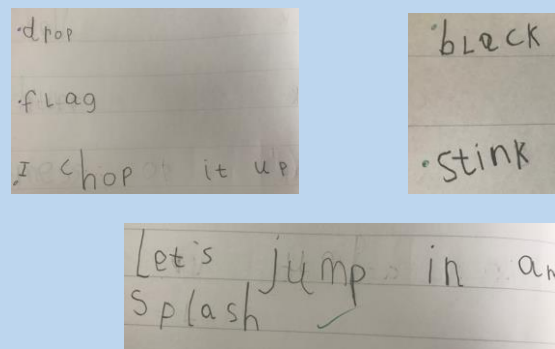 ·drop
·fLag
·I chop it up
·bLack
·stink
Let's jump in an
Splash